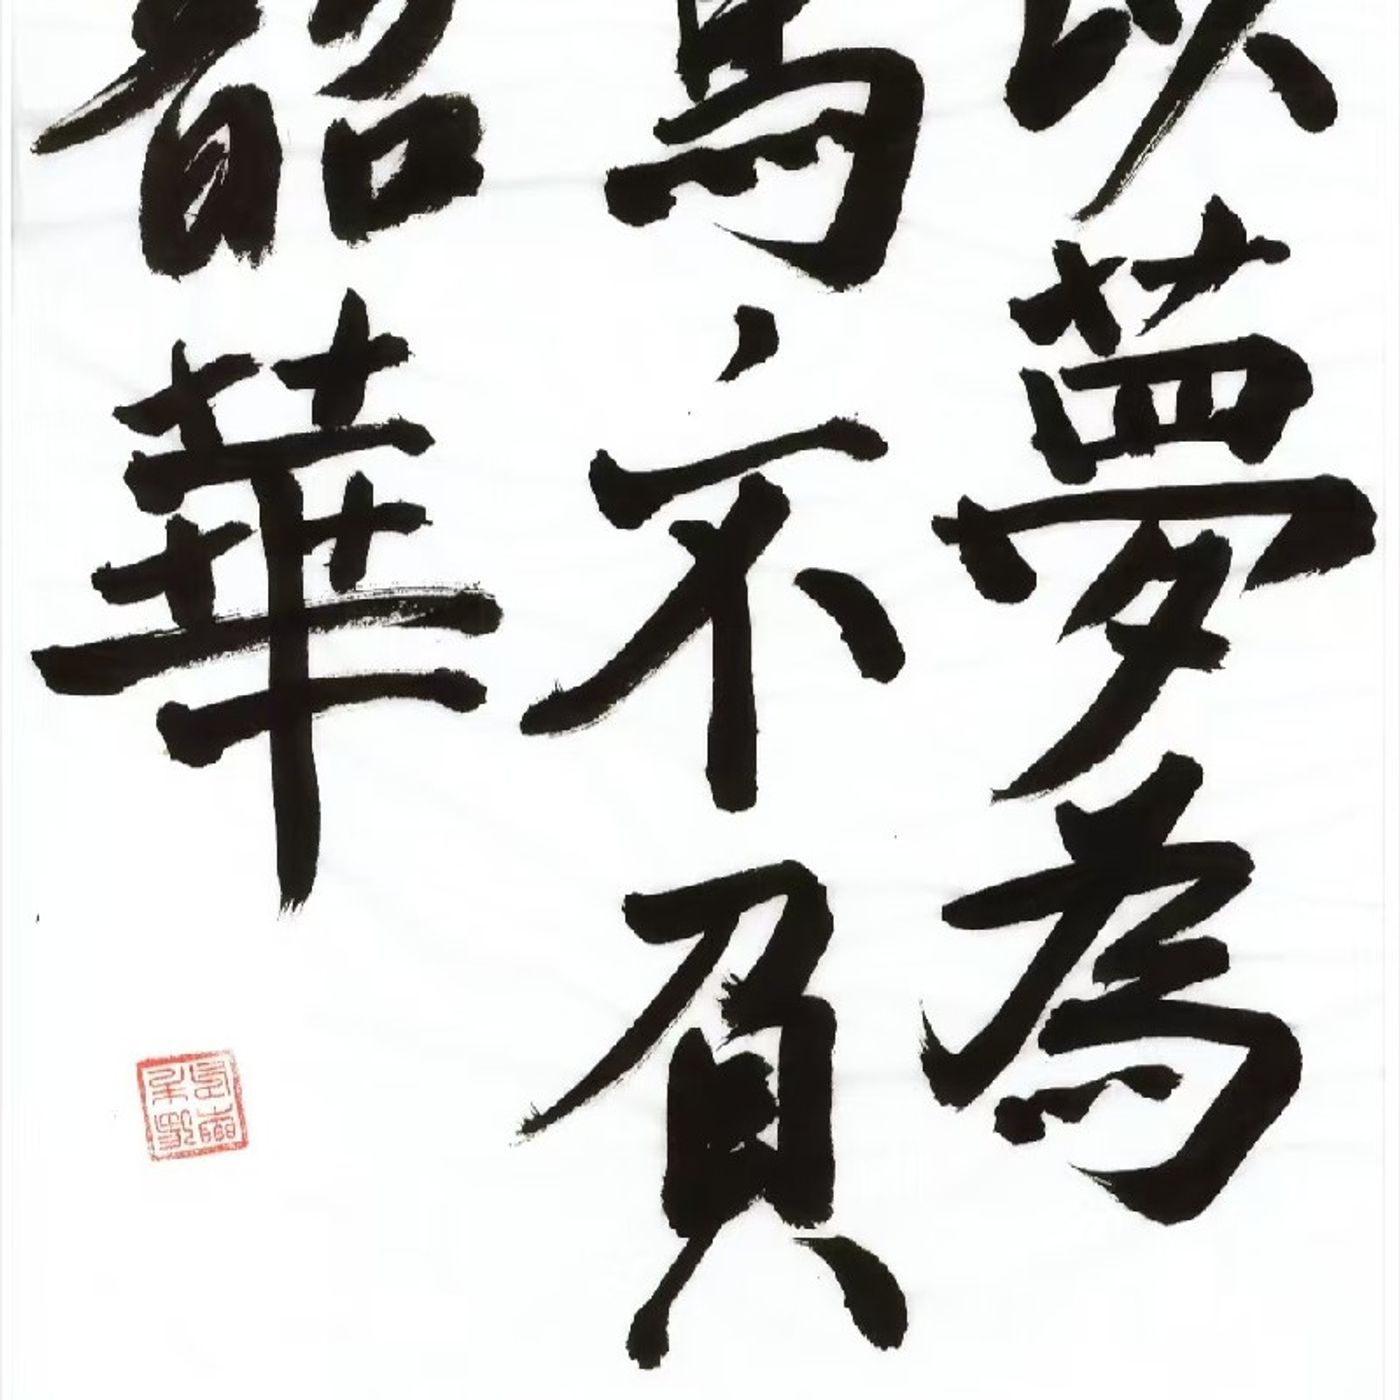 以夢為
馬不負
韶華